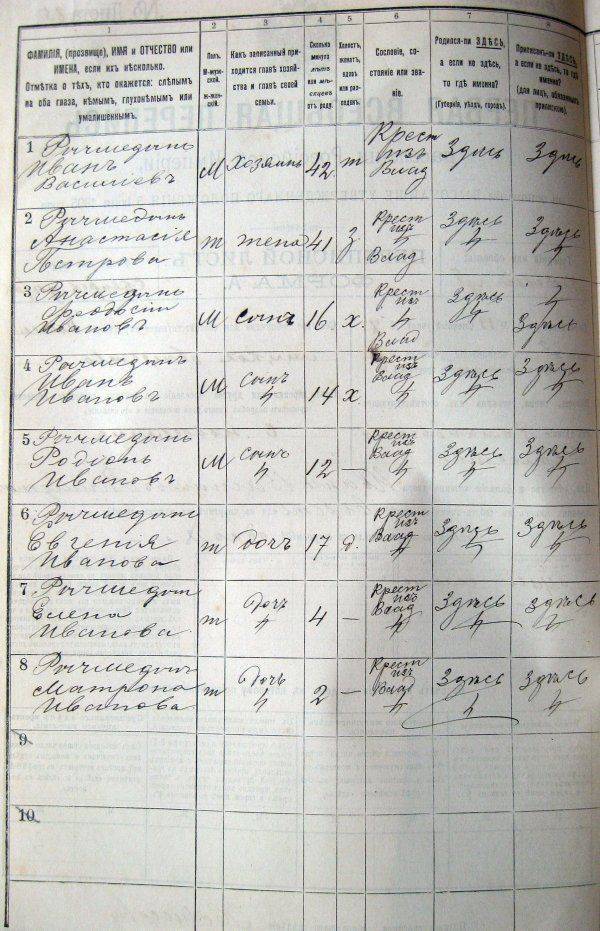 1 2 3 4 5 6 7 8
ФАМИЛІЯ, (прозвище), ИМЯ и ОТЧЕСТВО или
ИМЕНА, если ихъ нѣсколько.
Отмѣтка о тѣхъ, кто окажется: слѣпымъ
на оба глаза, нѣмымъ, глухонѣмымъ или
умалишеннымъ.
Полъ.
М-мужской.
Ж-женскій.
Какъ записанный при-
ходится главѣ хозяй-
ства и главѣ своей
семьи.
Сколько
минуло
лѣтъ
или мѣ-
сяцевъ
отъ роду.
Холостъ,
женатъ,
вдовъ
или раз-
веденъ.
Сословіе, со-
стояніе или зва-
ніе.
Родился-ли ЗДѢСЬ,
а если не здѣсь,
то гдѣ именно?
(Губернія, уѣздъ, городъ).
Приписанъ-ли ЗДѢСЬ,
а если не здѣсь, то гдѣ
именно?
(для лицъ, обязанныхъ
припискою).
1
Иванъ
Васильевъ
М Хозяинъ 42 ж Крест изъ Влад Здѣсь Здѣсь
2
Анастасія
Петрова
ж жена 41 з Крест изъ Влад Здѣсь Здѣсь
3
Ивановъ
М сынъ 16 х. Крест изъ Влад Здѣсь Здѣсь
4
Иванъ
Ивановъ
М Сынъ 14 х. Крест изъ Влад Здѣсь Здѣсь
5
Родіонъ
Ивановъ
М Сынъ 12 — Крест изъ Влад Здѣсь Здѣсь
6
Евгенія
Иванова
ж Дочь 17 д. Крест изъ Влад Здѣсь Здѣсь
7
Елена
Иванова
ж Дочь 4 — Крест изъ Влад Здѣсь Здѣсь
8
Матрона
Иванова
ж Дочь 2 — Крест изъ Влад Здѣсь Здѣсь
9
10